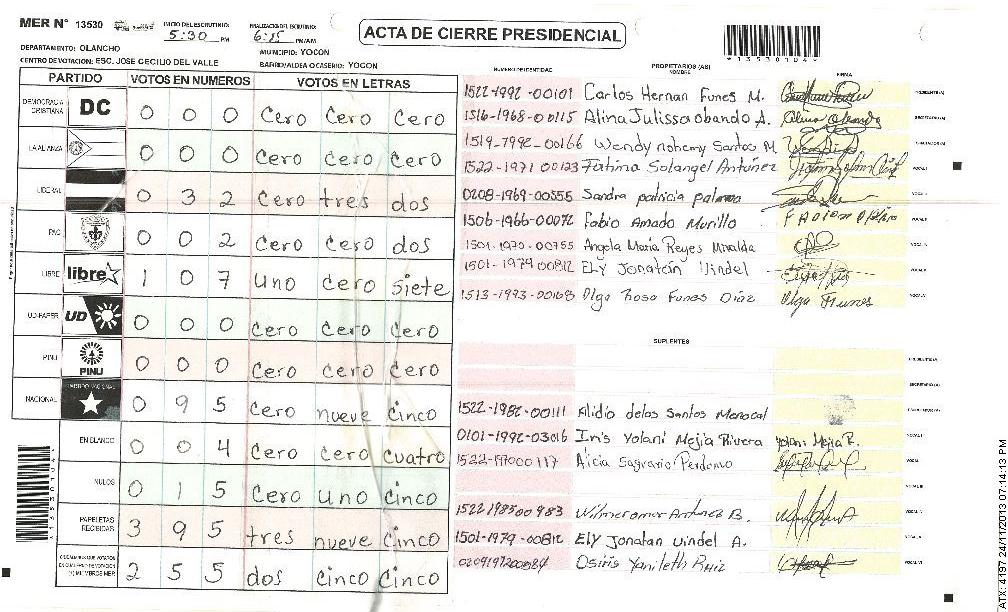 MER N° 13530
INICIO DEL ESCRUTINIO: 5:30 PM
FINALIZACION DEL ESCRUTINIO: 6:15 PM/AM
ACTA DE CIERRE PRESIDENCIAL
*13530104*
DEPARTAMENTO: OLANCHO
MUNICIPIO: YOCON
CENTRO DE VOTACION: ESC. JOSE CECILIO DEL VALLE
BARRIO/ALDEA O CASERIO: YOCON
PARTIDO VOTOS EN NUMEROS VOTOS EN LETRAS
DEMOCRACIA CRISTIANA DC 0 0 0 Cero Cero Cero
LA ALIANZA 0 0 0 Cero Cero Cero
LIBERAL 0 3 2 Cero tres dos
PAC 0 0 2 Cero Cero dos
LIBRE libre 1 0 7 uno cero siete
UD-FAPER UD 0 0 0 Cero Cero Cero
PINU PINU 0 0 0 Cero Cero Cero
NACIONAL PARTIDO NACIONAL 0 9 5 Cero nueve cinco
EN BLANCO 0 0 4 Cero Cero cuatro
NULOS 0 1 5 Cero uno cinco
PAPELETAS RECIBIDAS 3 9 5 tres nueve cinco
2 5 5 dos cinco cinco
NUMERO DE IDENTIDAD PROPIETARIOS (AS) NOMBRE FIRMA
1522-1992-00101 Carlos Hernan Funes M. PRESIDENTE(A)
1516-1968-00115 Alina Julissa obando A. SECRETARIO(A)
1519-1992-00166 Wendy nohemy Santos M. ESCRUTADOR(A)
1522-1971 00123 Fatima Solangel Antúnez VOCAL I
0208-1969-00555 Sandra patricia
1506-1966-00072 Fabio Amado Murillo
Angela Maria Reyes
1501-1979 00812 Ely Jonatán Uindel
1513-1993-00168 Olga Rosa Funes Diaz Olga Funes
SUPLENTES
PRESIDENTE(A)
SECRETARIO(A)
1522-1982-00111 Alidio delos Santos
0101-1992-03016 Iris Yolani Mejia Rivera Yolani Mejia R.
1522-197000117 Alcia Sagrario Perdomo
1522198500983 Wilmer omar Antunez B.
1501-1979-00812 Ely Jonatan uindel A.
Osiris Yanileth Ruiz
*13530104*
ATX: 4197 24/11/2013 07:14:13 PM